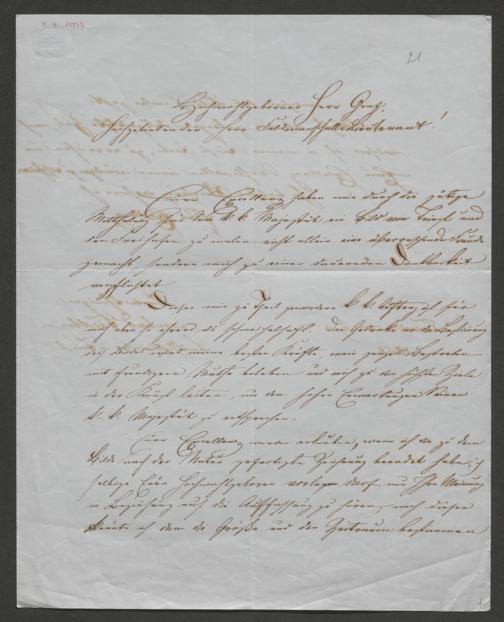 21
Hochwohlgeborner Herr Graf,
Hochgebietender Herr Feldmarschall-Lieutenant!
Eure Excellenz haben mir durch die gütige
Mittheilung für Sr. k. k. Majestät ein Bild von Triest und
dem Freihafen zu malen nicht allein eine überraschende Freude
gemacht, sondern mich zu einer dauernden Dankbarkeit
verpflichtet.
Dieser mir zu Theil gewordene k. k. Auftrag ist für
mich eben so ehrend als schmeichelhaft. Der Gedanke an die
des Bildes wird meine besten Kräfte, mein ganzes Bestreben
mit freudigem Muthe beleben und mich zu dem höchsten Ziele
in der Kunst leiten, um den hohen Erwartungen Seiner
k. k. Majestät zu entsprechen.
Eure Excellenz werden erlauben, wenn ich die zu dem
Bilde nach der Natur gefertigte Zeichnung beendet habe,
selbige Euer Hochwohlgeboren vorlegen darf um Ihre Meinung
in Beziehung auf die Auffassung zu hören, nach dieser
könnte ich dann die Größe und den Zeitraum bestimmen